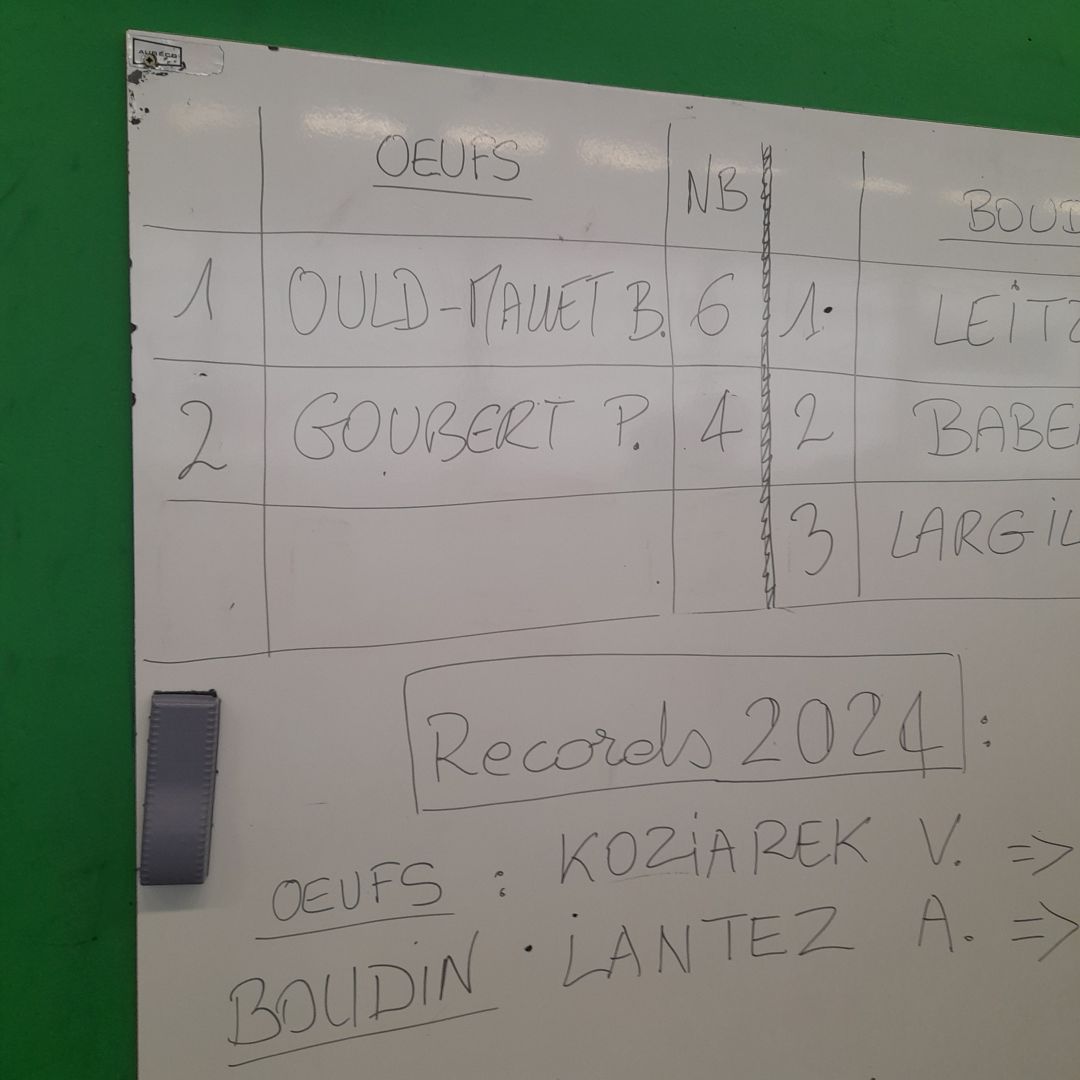 AUBÉCO
OEUFS NB BOUD
1 OULD-MALLET B. 6 1. LEiTZ
2 GOUBERT P. 4 2 BABE
3 LARGiL
Records 2024 :
OEUFS : KOZiAREK V. =>
BOUDiN . LANTEZ A. =>